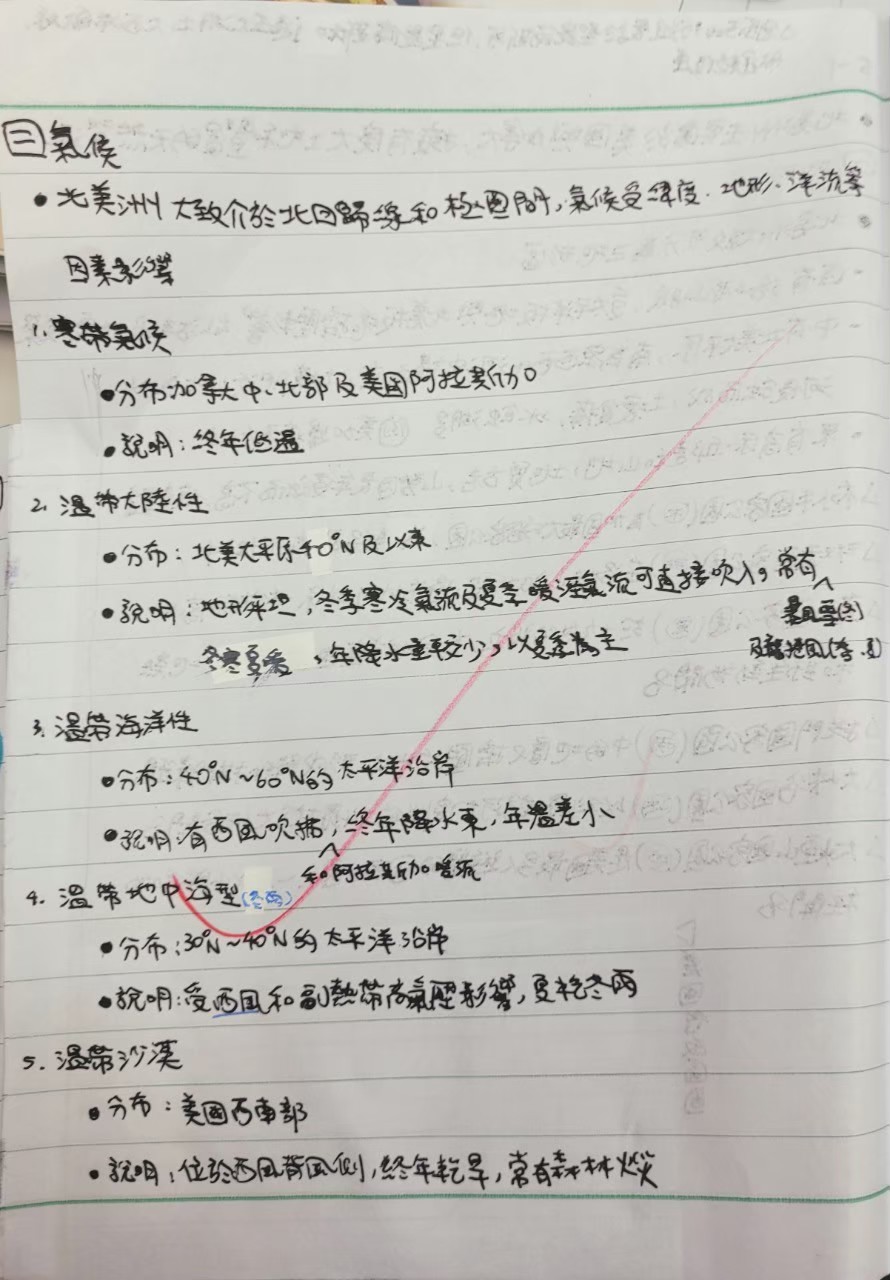 三 氣候
• 北美洲大致介於北回歸線和極圈間,氣候受緯度、地形、洋流等
因素影響
1. 寒帶氣候
• 分布加拿大中、北部及美國阿拉斯加
• 說明:終年低溫
2. 溫帶大陸性
• 分布:北美大平原40°N及以東
• 說明:地形平坦,冬季寒冷氣流及夏季暖溼氣流可直接吹入,常有
暴風雪(冬)
及龍捲風(春、夏)
冬寒夏暖,年降水量較少,以夏季為主
3. 溫帶海洋性
• 分布:40°N~60°N的太平洋沿岸
• 說明:有西風吹拂,終年降水東,年溫差小
和阿拉斯加暖流
4. 溫帶地中海型(冬雨)
• 分布:30°N~40°N的太平洋沿岸
• 說明:受西風和副熱帶高氣壓影響,夏乾冬雨
5. 溫帶沙漠
• 分布:美國西南部
• 說明:位於西風背風側,終年乾旱,常有森林火災